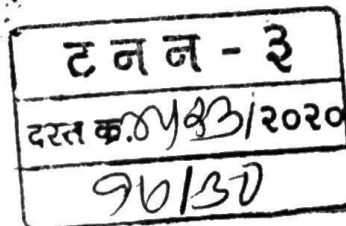 ट न न - ३
दस्त क्र.४५९३/२०२०
१७/३०